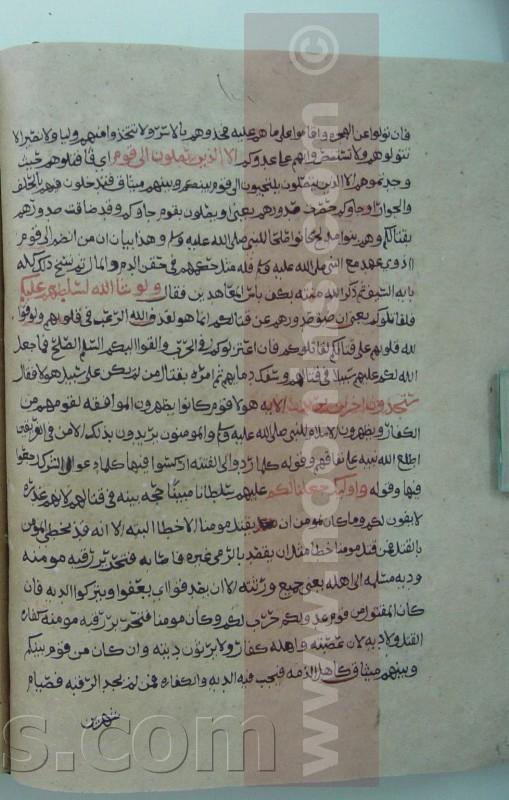 فان تولوا عن الهجرة واقاموا على ما هم عليه فخذوهم بالاسر ولا تتخذوا منهم وليا ولا نصيرا لا
تتولوهم ولا تستنصروا بهم على عدوكم الا الذين يصلون الى قوم اي فاقتلوهم حيث
وجدتموهم الا الذين يتصلون يلتجيون الى قوم بينكم وبينهم ميثاق فيدخلون فيهم بالحلف
والجوار او جاوكم حصرت صدورهم يعني او يصلون بقوم جاوكم وقد ضاقت صدورهم
بقتالكم وهم بنوا مدلج كانوا صلحا للنبي صلى الله عليه وسلم وهذا بيان ان من انضم الى قوم
ذوي عهد مع النبي صلى الله عليه وسلم فله مثل حكمهم في حقن الدم والمال ثم نسخ ذلك كله
باية السيف ثم ذكر الله منته بكف باس المعاهدين فقال ولو شا الله لسلطهم عليكم
فلقاتلوكم يعني ان ضيق صدورهم عن قتالكم انما هو لقذف الله الرعب في قلوبهم ولو قوا
لله قلوبهم على قتالكم لقاتلوكم فان اعتزلوكم في الحرب والقوا اليكم السلم الصلح فما جعل
الله لكم عليهم سبيلا في قتالهم وسفك دمايهم ثم امره بقتال من لم يكن على سبيل هولا فقال
ستجدون اخرين الاية هولا قوم كانوا يظهرون الموافقة لقومهم من
الكفار ويظهرون الاسلام للنبي صلى الله عليه وسلم والمومنون يريدون بذلك الامن في الفريقين
اطلع الله نبيه على نفاقهم وقوله كلما ردوا الى الفتنة اركسوا فيها كلما دعوا الى الشرك رجعوا
فيها وقوله واوليكم جعلنا لكم عليهم سلطانا مبينا حجة بينة في قتالهم لانهم غدرة
لا يفون لكم وما كان لمومن ان يقتل مومنا الا خطا البتة الا انه قد يخطي المومن
بالقتل فمن قتل مومنا خطا مثل ان يقصد بالرمي غيره فاصابه فتحرير رقبة مومنة
ودية مسلمة الى اهله يعني جميع ورثته الا ان يصدقوا اي يعفوا ويتركوا الدية فان
كان المقتول من قوم عدو لكم حرب لكم وكان مومنا فتحرير رقبة مومنة كفارة
القتل ولا دية لان عصبته واهله كفار ولا يرثون ديته وان كان من قوم بينكم
وبينهم ميثاق كاهل الذمة فيجب فيه الدية والكفارة فمن لم يجد الرقبة فصيام
شهرين
www. .com ©
s.com